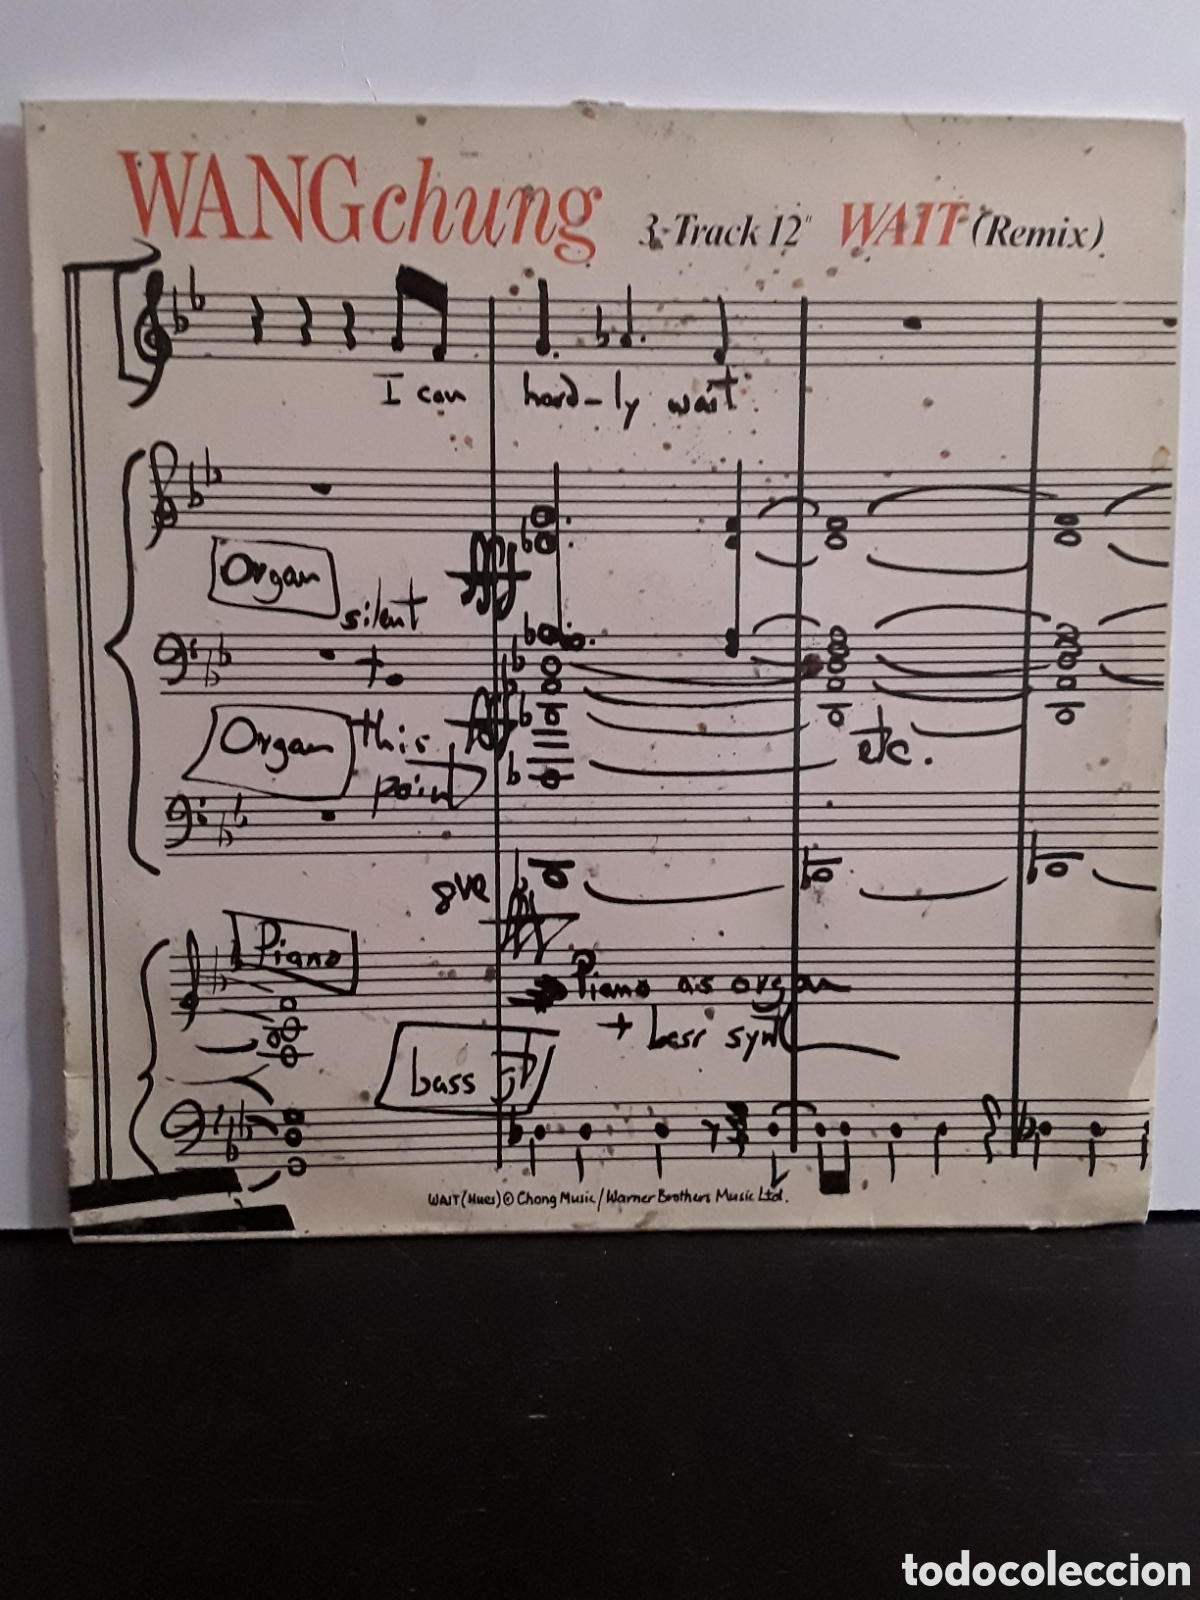 WANGchung 3-Track 12" WAIT (Remix)
I can hard-ly wait
Organ
silent
Organ this
point
etc.
8ve
Piano
Piano as organ
+ bass synth
bass
WAIT (Hues) © Chong Music / Warner Brothers Music Ltd.
todocoleccion